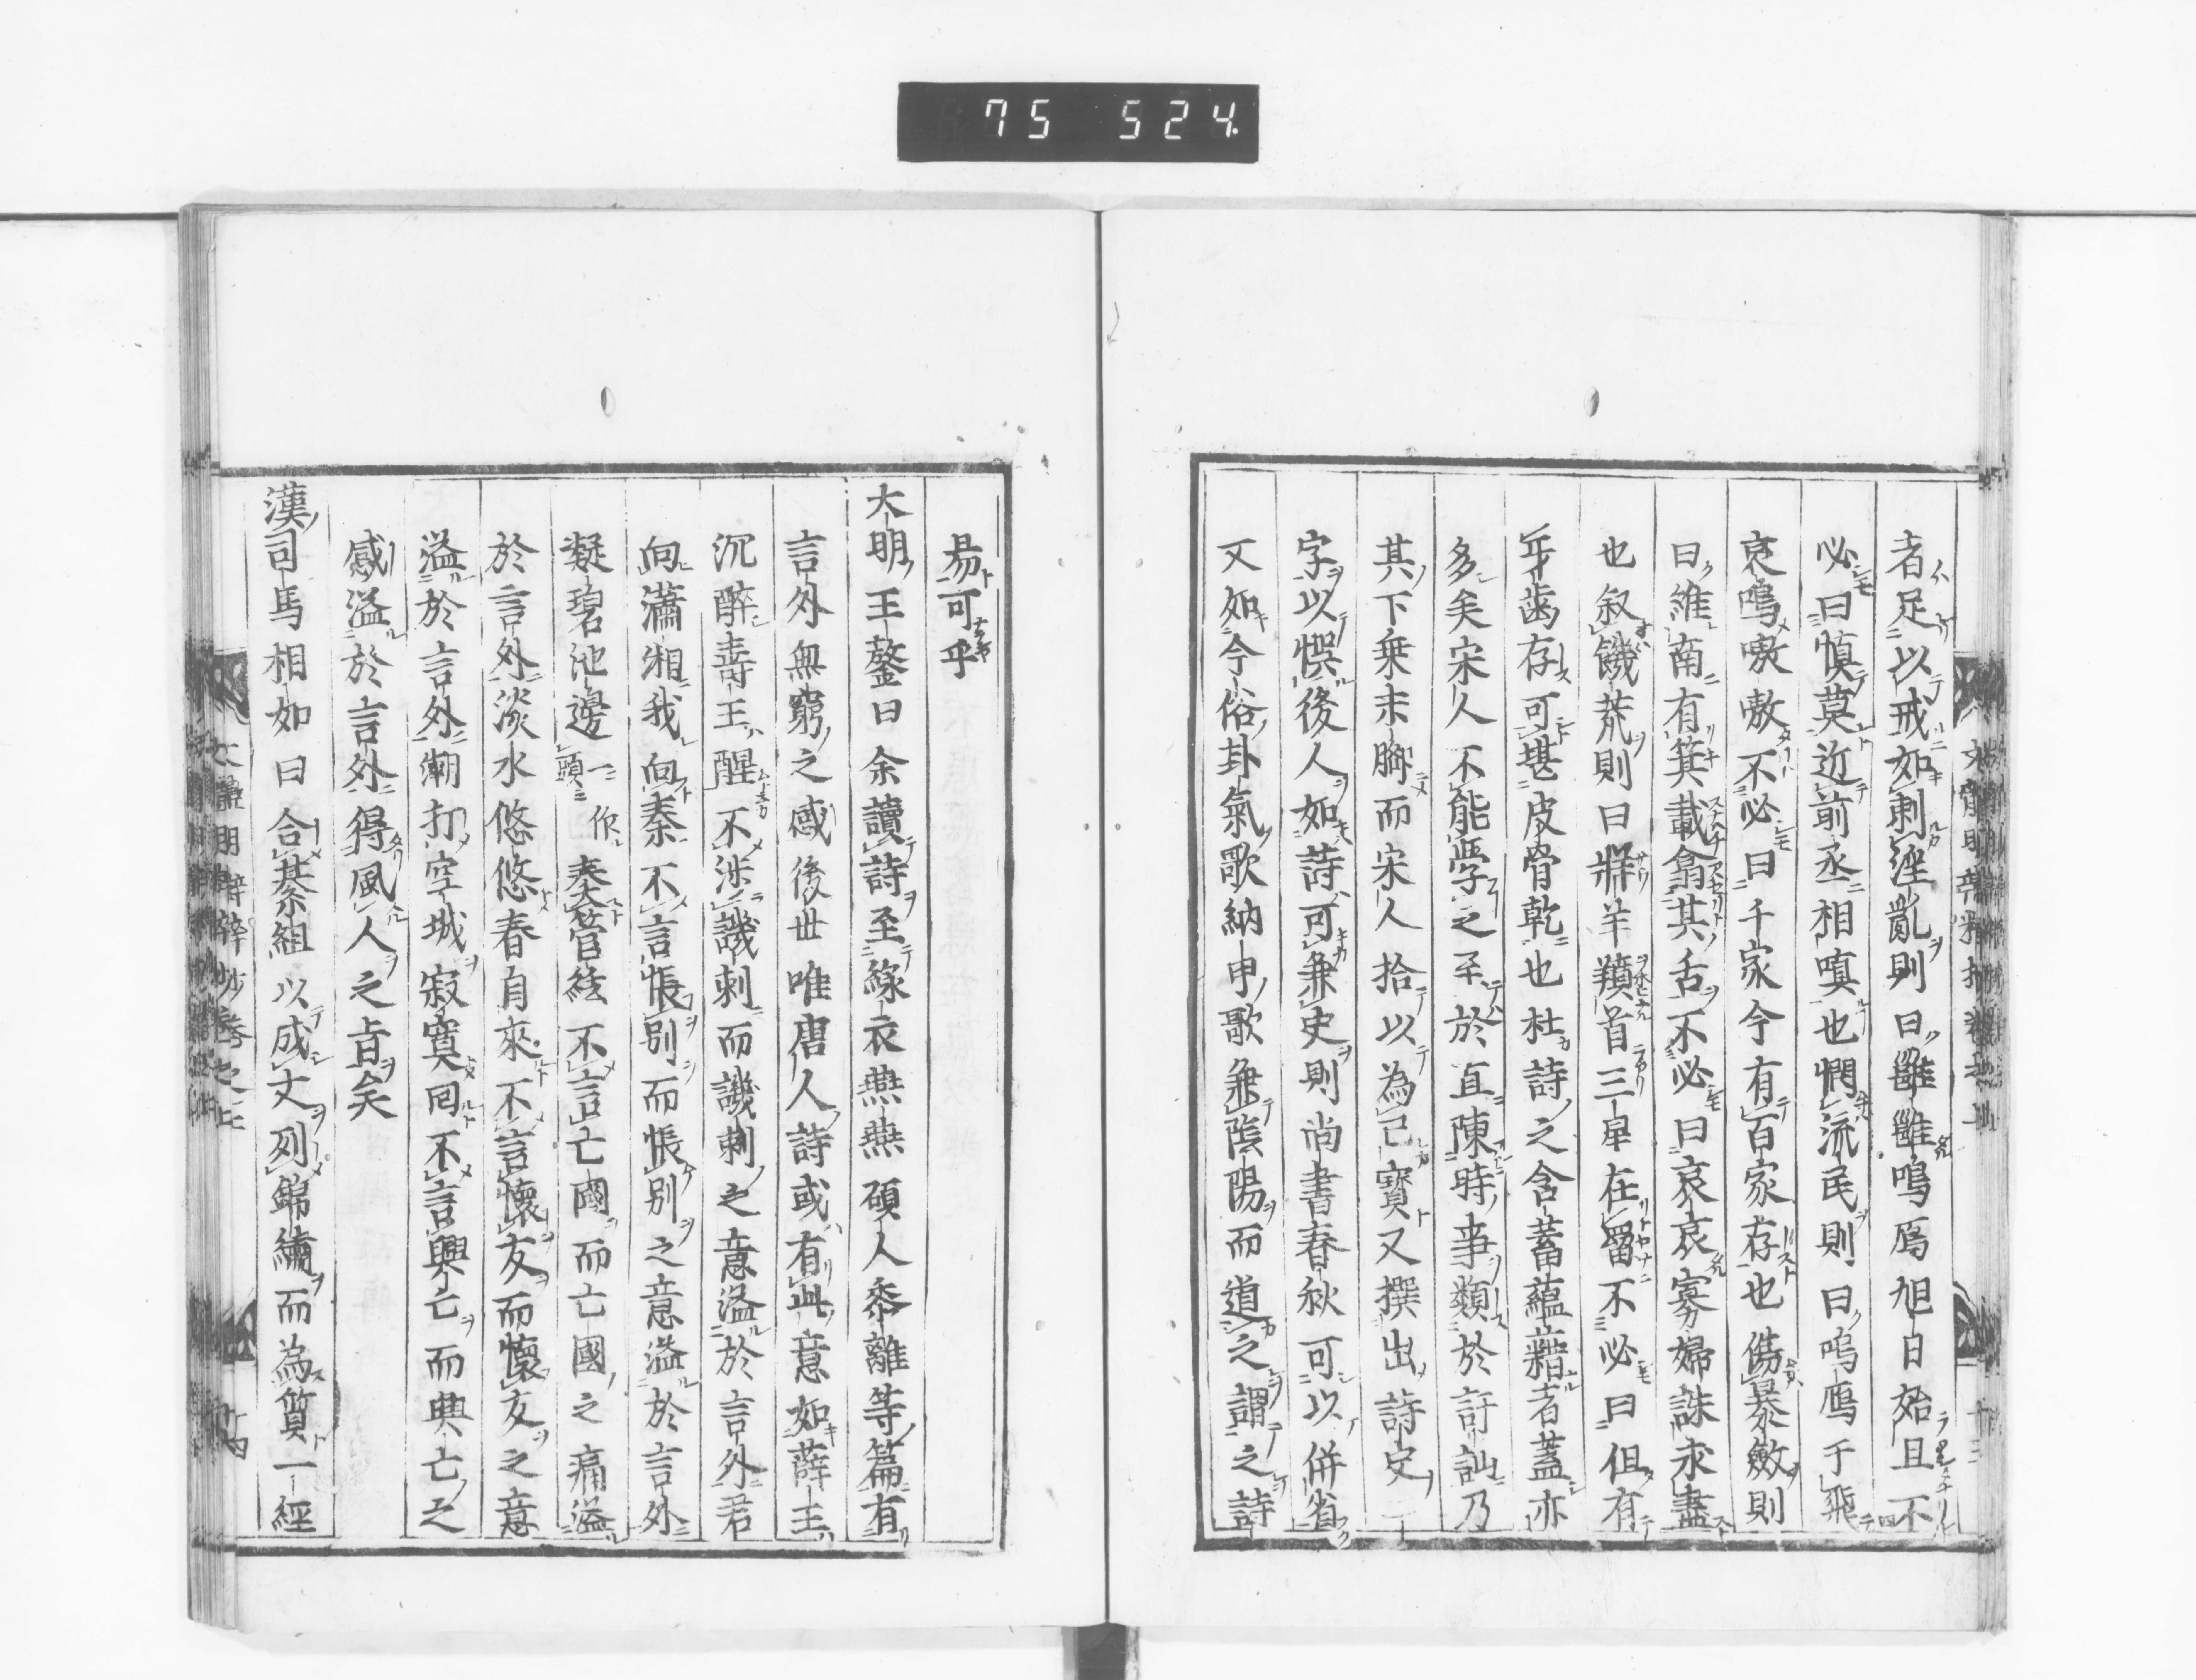 75 524
者足以戒如刺淫亂則曰雝雝鳴鴈旭日始旦不
必曰愼莫近前丞相嗔也憫流民則曰鳴鴈于飛
哀鳴嗷嗷不必曰千家今有百家存也傷暴斂則
曰維南有箕載翕其舌不必曰哀哀寡婦誅求盡
也叙饑荒則曰牂羊羵首三星在罶不必曰但有
牙齒存可堪皮骨乾也杜詩之含蓄蘊藉者蓋亦
多矣宋人不能學之至於直陳時事類於訐訕乃
其下乗末脚而宋人拾以為己寶又撰出詩史二
字以悞後人如詩可兼史則尚書春秋可以併省
又如今俗卦氣歌納甲歌兼陰陽而道之謂之詩
易可乎
大明王鏊曰余讀詩至綠衣燕燕碩人黍離等篇有
言外無窮之感後世唯唐人詩或有此意如薛王
沉醉壽王醒不涉譏刺而譏刺之意溢於言外君
向瀟湘我向秦不言悵別而悵別之意溢於言外
凝碧池邊一作頭奏管絃不言亡國而亡國之痛溢
於言外淡水悠悠春自來不言懷友而懷友之意
溢於言外潮打空城寂寞回不言興亡而興亡之
感溢於言外得風人之旨矣
漢司馬相如曰合綦組以成文列錦繡而為質一經